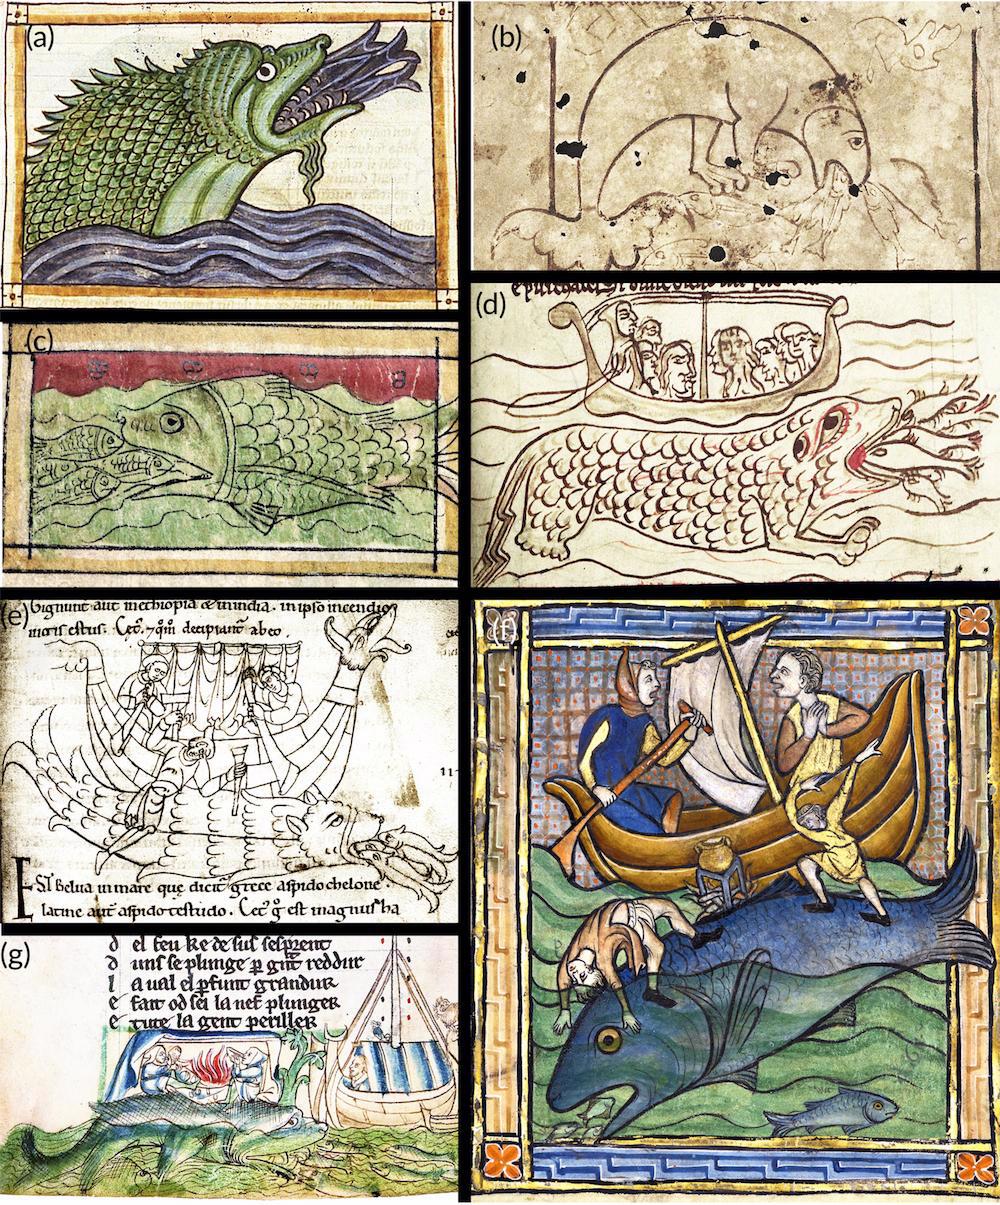 (a)
(b)
(c)
(d)
(e)
Gignunt aut inethiopia & inindia. in ipso incendio
estus. Cet. 7 qm decipiant ab eo.
EST Belua inmare que dicit grece aspido chelone.
latine aut aspido testudo. Cet g est magnus ha
(g)
d el feu ke de sus sesprent
d uns se plunge p grant reddur
l a ual el pfunt grandur
e fait od sei la nef plunger
e tute la gent periller